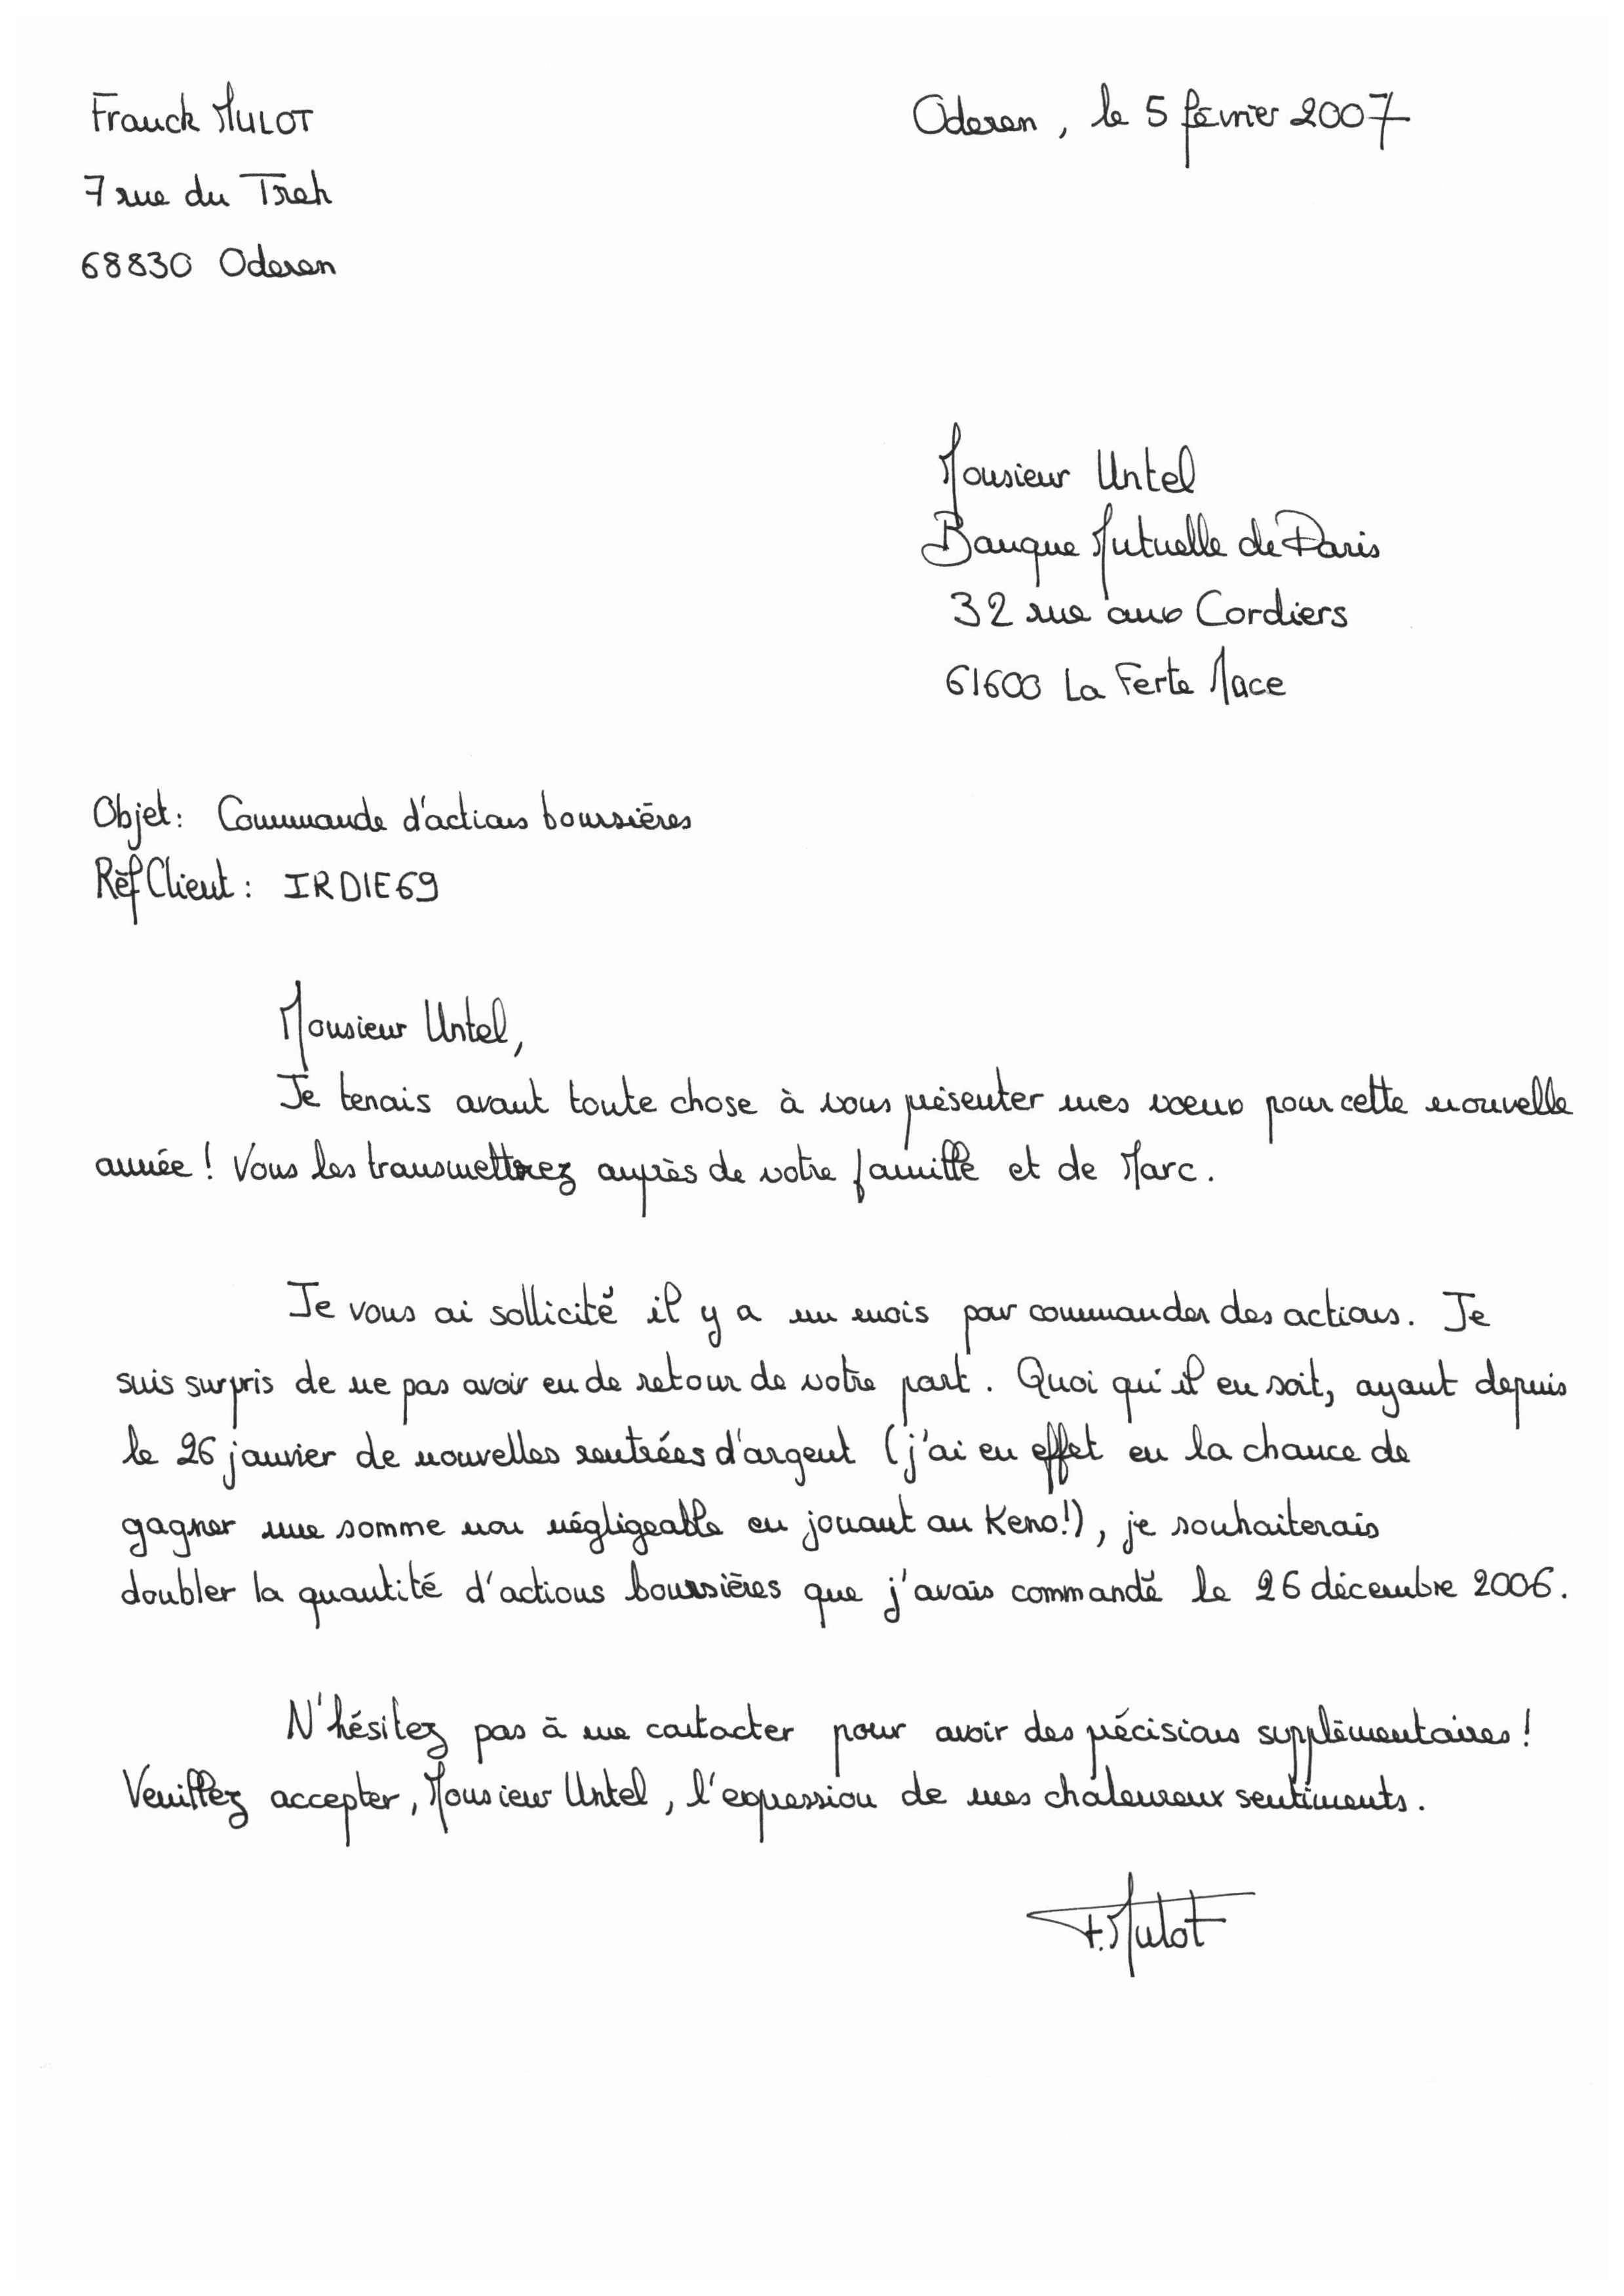 Franck MULOT
Oderen, le 5 février 2007
7 rue du Treh
68830 Oderen
Monsieur Untel
Banque Mutuelle de Paris
32 rue aux Cordiers
61600 La Ferte Mace
Objet: Commande d'actions boursières
Réf Client : IRDIE69
Monsieur Untel,
Je tenais avant toute chose à vous présenter mes voeux pour cette nouvelle
année ! Vous les transmettrez auprès de votre famille et de Marc.
Je vous ai sollicité il y a un mois pour commander des actions. Je
suis surpris de ne pas avoir eu de retour de votre part. Quoi qu'il en soit, ayant depuis
le 26 janvier de nouvelles rentrées d'argent (j'ai en effet eu la chance de
gagner une somme non négligeable en jouant au Keno!), je souhaiterais
doubler la quantité d'actions boursières que j'avais commandé le 26 décembre 2006.
N'hésitez pas à me contacter pour avoir des précisions supplémentaires !
Veuillez accepter, Monsieur Untel, l'expression de mes chaleureux sentiments.
F. Mulot